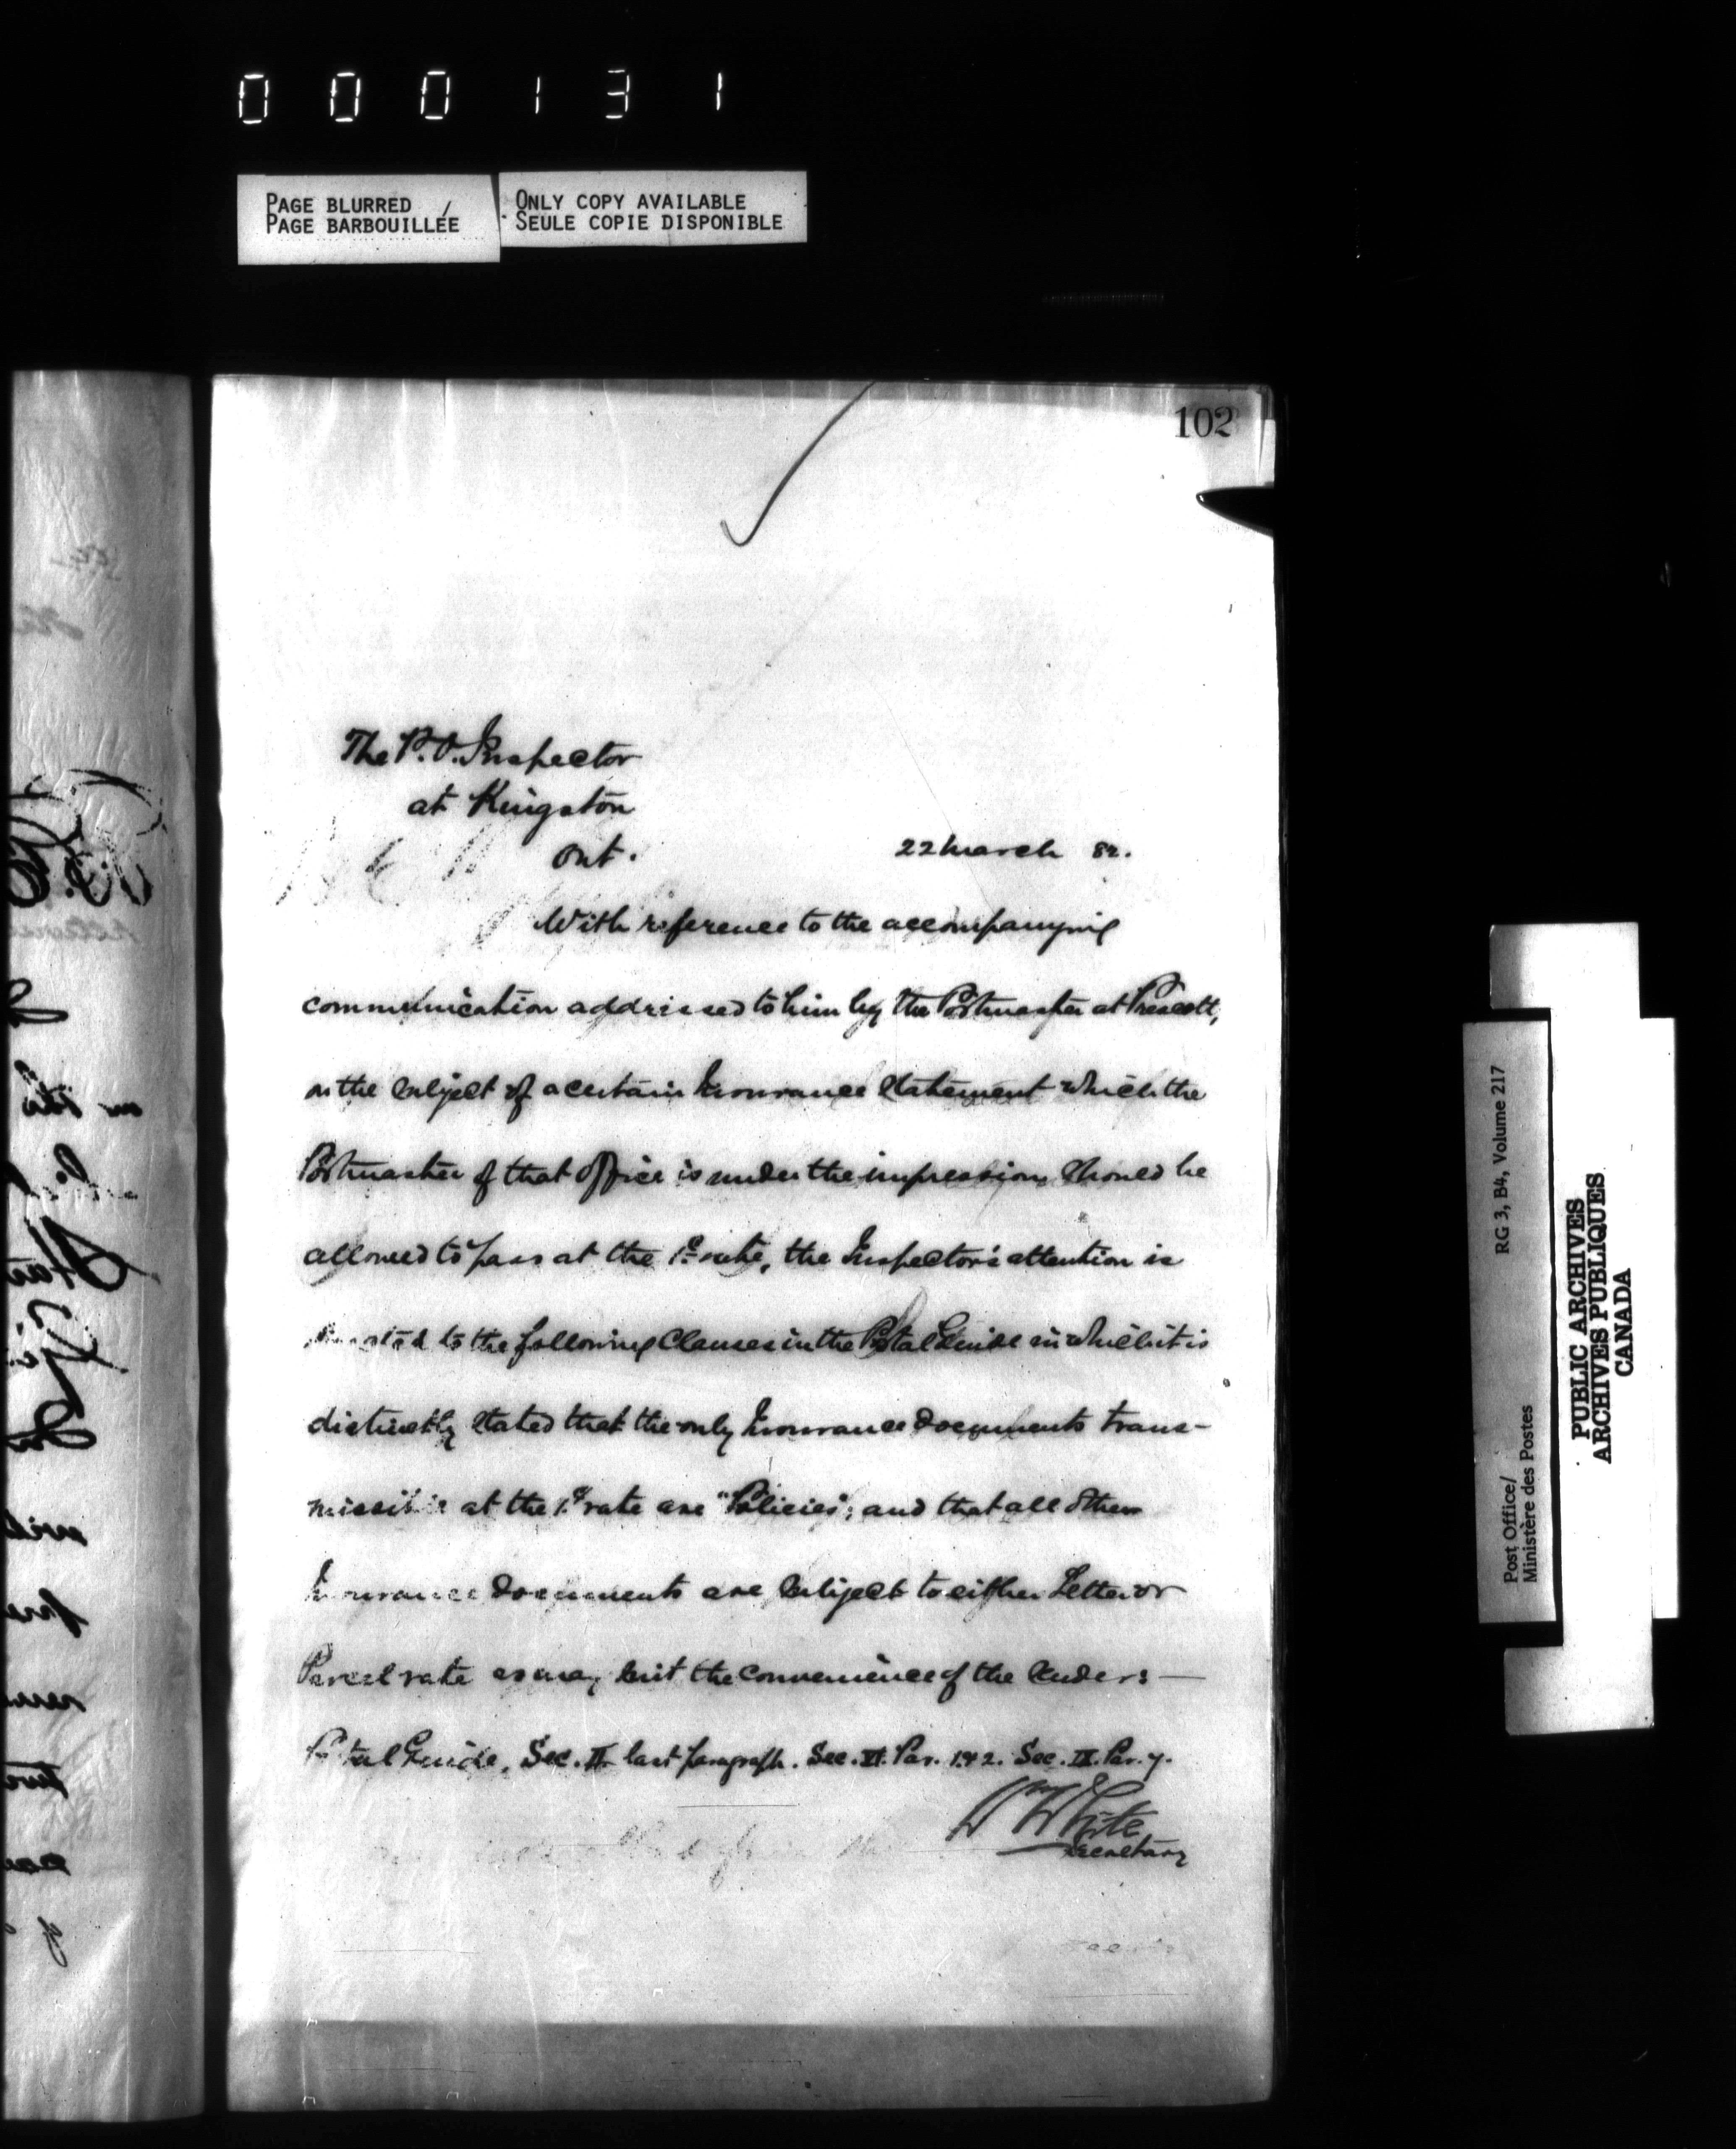 000131
PAGE BLURRED /
PAGE BARBOUILLÉE
ONLY COPY AVAILABLE
SEULE COPIE DISPONIBLE
102
The P.O. Inspector
at Kingston
Ont.
22 March 82.
With reference to the accompanying
communication addressed to him by the Postmaster at Prescott,
on the subject of a certain Insurance Statement which the
Postmaster of that office is under the impression should be
allowed to pass at the 1c rate, the Inspector's attention is
to the following Clauses in the Postal Guide in which it is
distinctly stated that the only Insurance Documents trans-
missible at the 1c rate are "Policies", and that all other
Insurance Documents are subject to either Letter or
Parcel rate as may suit the convenience of the senders —
Postal Guide, Sec. II last paragraph. Sec. VI. Par. 1 & 2. Sec. IX. Par. 7.
Wm White
Secretary
RG 3, B4, Volume 217
Post Office/
Ministère des Postes
PUBLIC ARCHIVES
ARCHIVES PUBLIQUES
CANADA